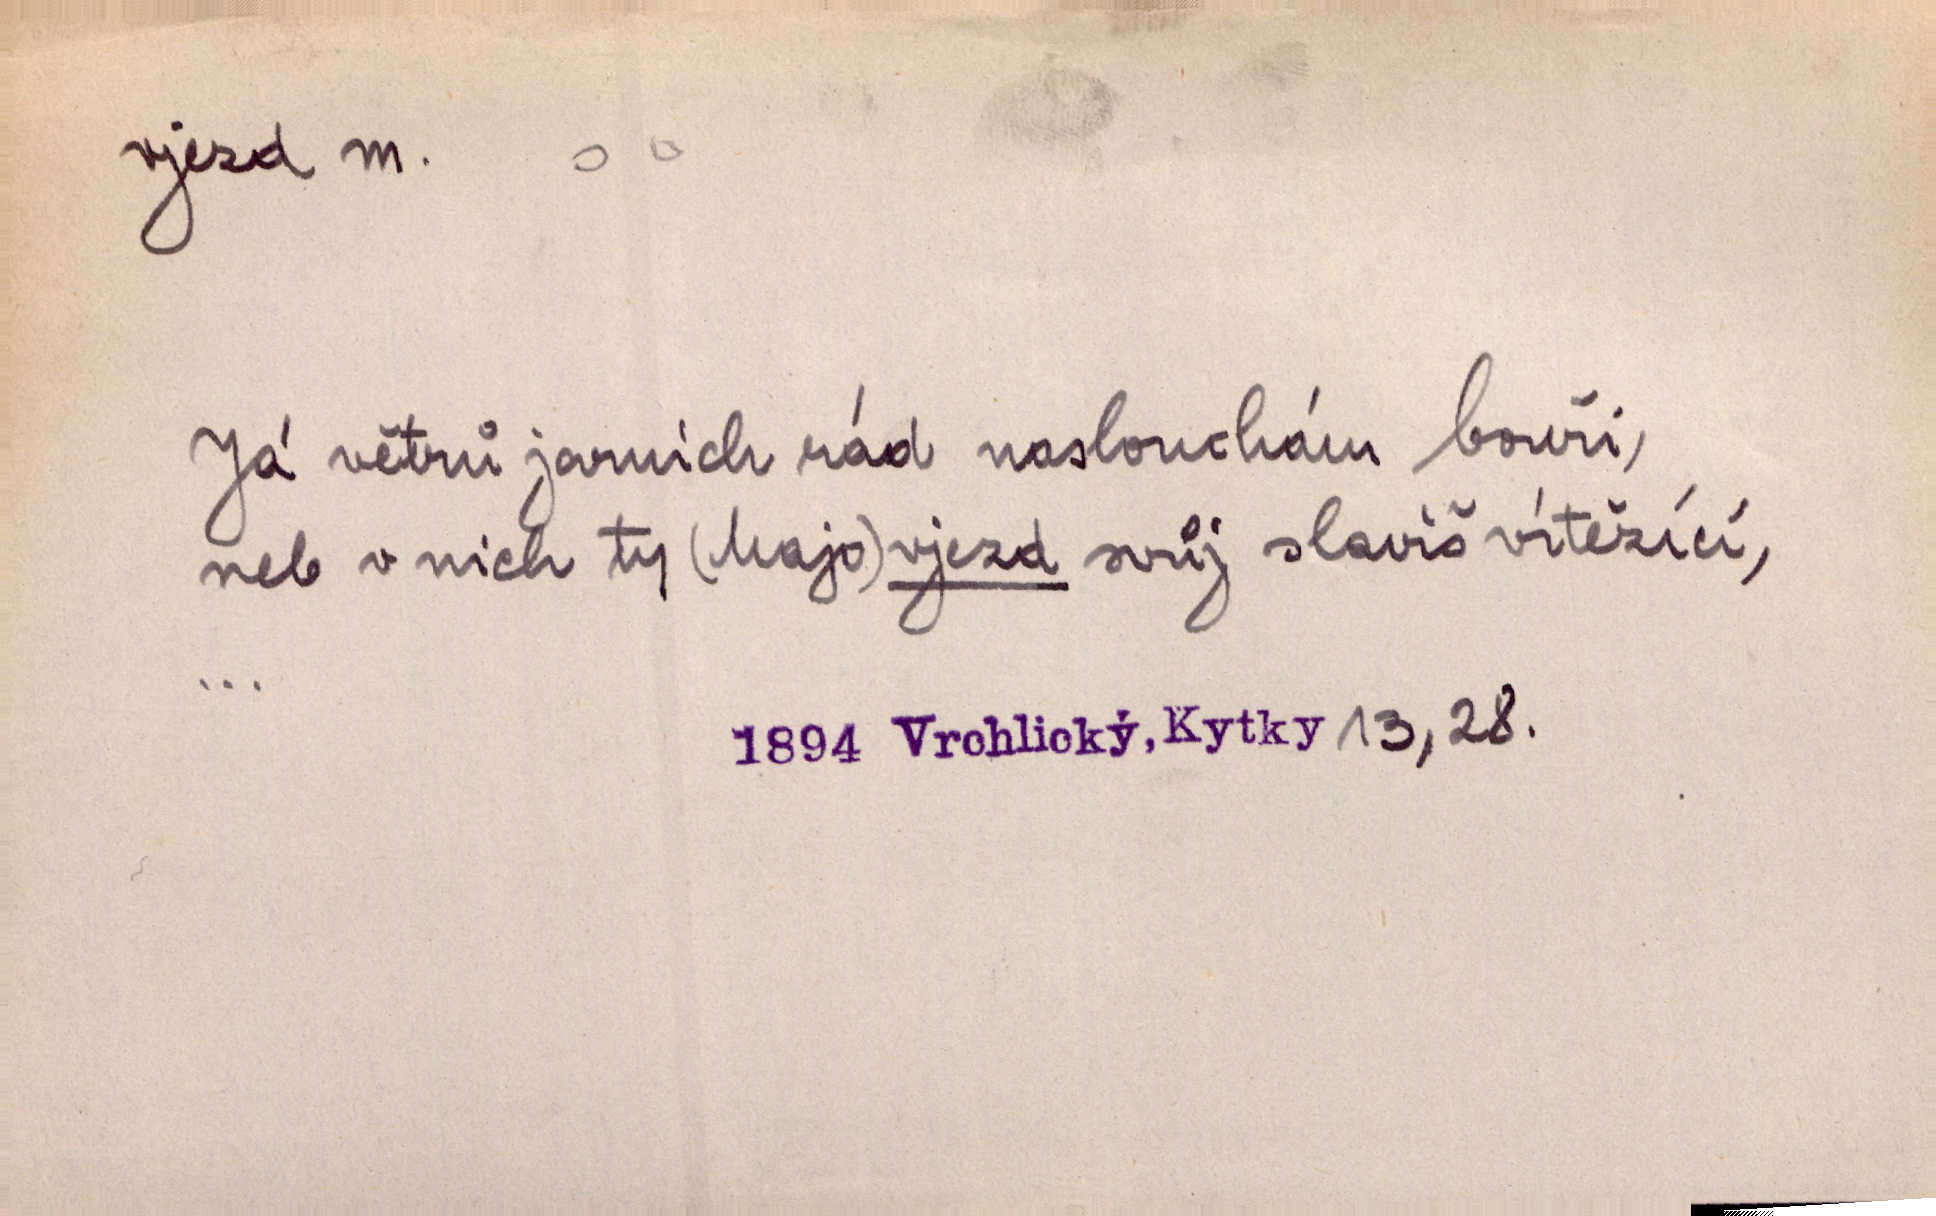 vjezd m. o o
Já větrů jarních rád naslouchám bouři,
neb v nich ty (Majo) vjezd svůj slavíš vítězící,
...
1894 Vrchlický, Kytky 13, 28.